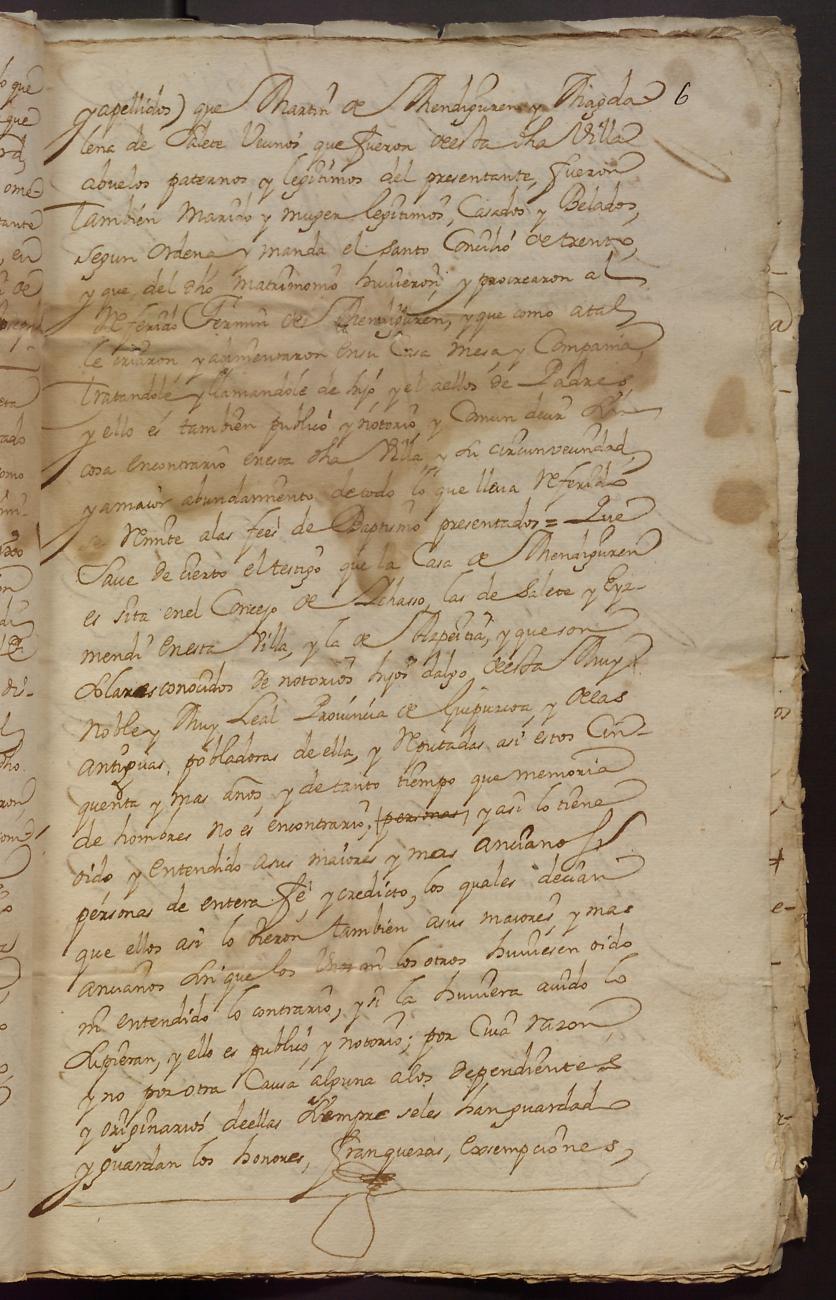 6
y apellidos) que Martin de Mendiguren y Magda
lena de Salete Veunos que fueron deesta dha Villa
abuelos paternos y legitimos del presentante, fueron
tambien Marido y muger legitimos, Casados y Belados,
segun ordena y manda el Santo Concilio de trento,
y que del dho matrimonio huvieron, y procrearon al
Referido Fermin de Mendiguren, y que como atal
le criaron y alimentaron ensu Casa mesa, y Compania,
tratandole y llamandole de hijo y el aellos de Padres,
y ello es tambien publico y notorio y comun decir sin
cosa encontrario enesta dha Villa y su circunveundad,
y amaior abundamiento detodo lo que lleva Referido
se Remite alas feés de Baptismo presentados = Que
Save de cierto el testigo que la Casa de Mendiguren
es sita enel Concejo de, las de Salete y Eza-
mendi enesta Villa, y la de, y que son
solares conocidos de notorios hijos dalgo deesta Muy
Noble y Muy Leal Provincia de Guipuzcoa y delas
antiguas pobladoras de ella, y Reputadas asi estos Cin-
quenta y mas años y de tanto tiempo que memoria
de hombres no es encontrario, (personas) y asi lo tiene
oido y entendido asus maiores y mas ancianos
personas de entera feé y credicto, los quales decian
que ellos asi lo oieron tambien asus maiores y mas
ancianos sin que los ni los otros huviesen oido
ni entendido lo contrario, y si la huviera avido lo
supieran, y ello es publico y notorio; por cuia razon,
y no por otra Causa alguna alos dependientes
y originarios deellas siempre seles han guardado
y guardan los honores, franquezas, exsempciones,